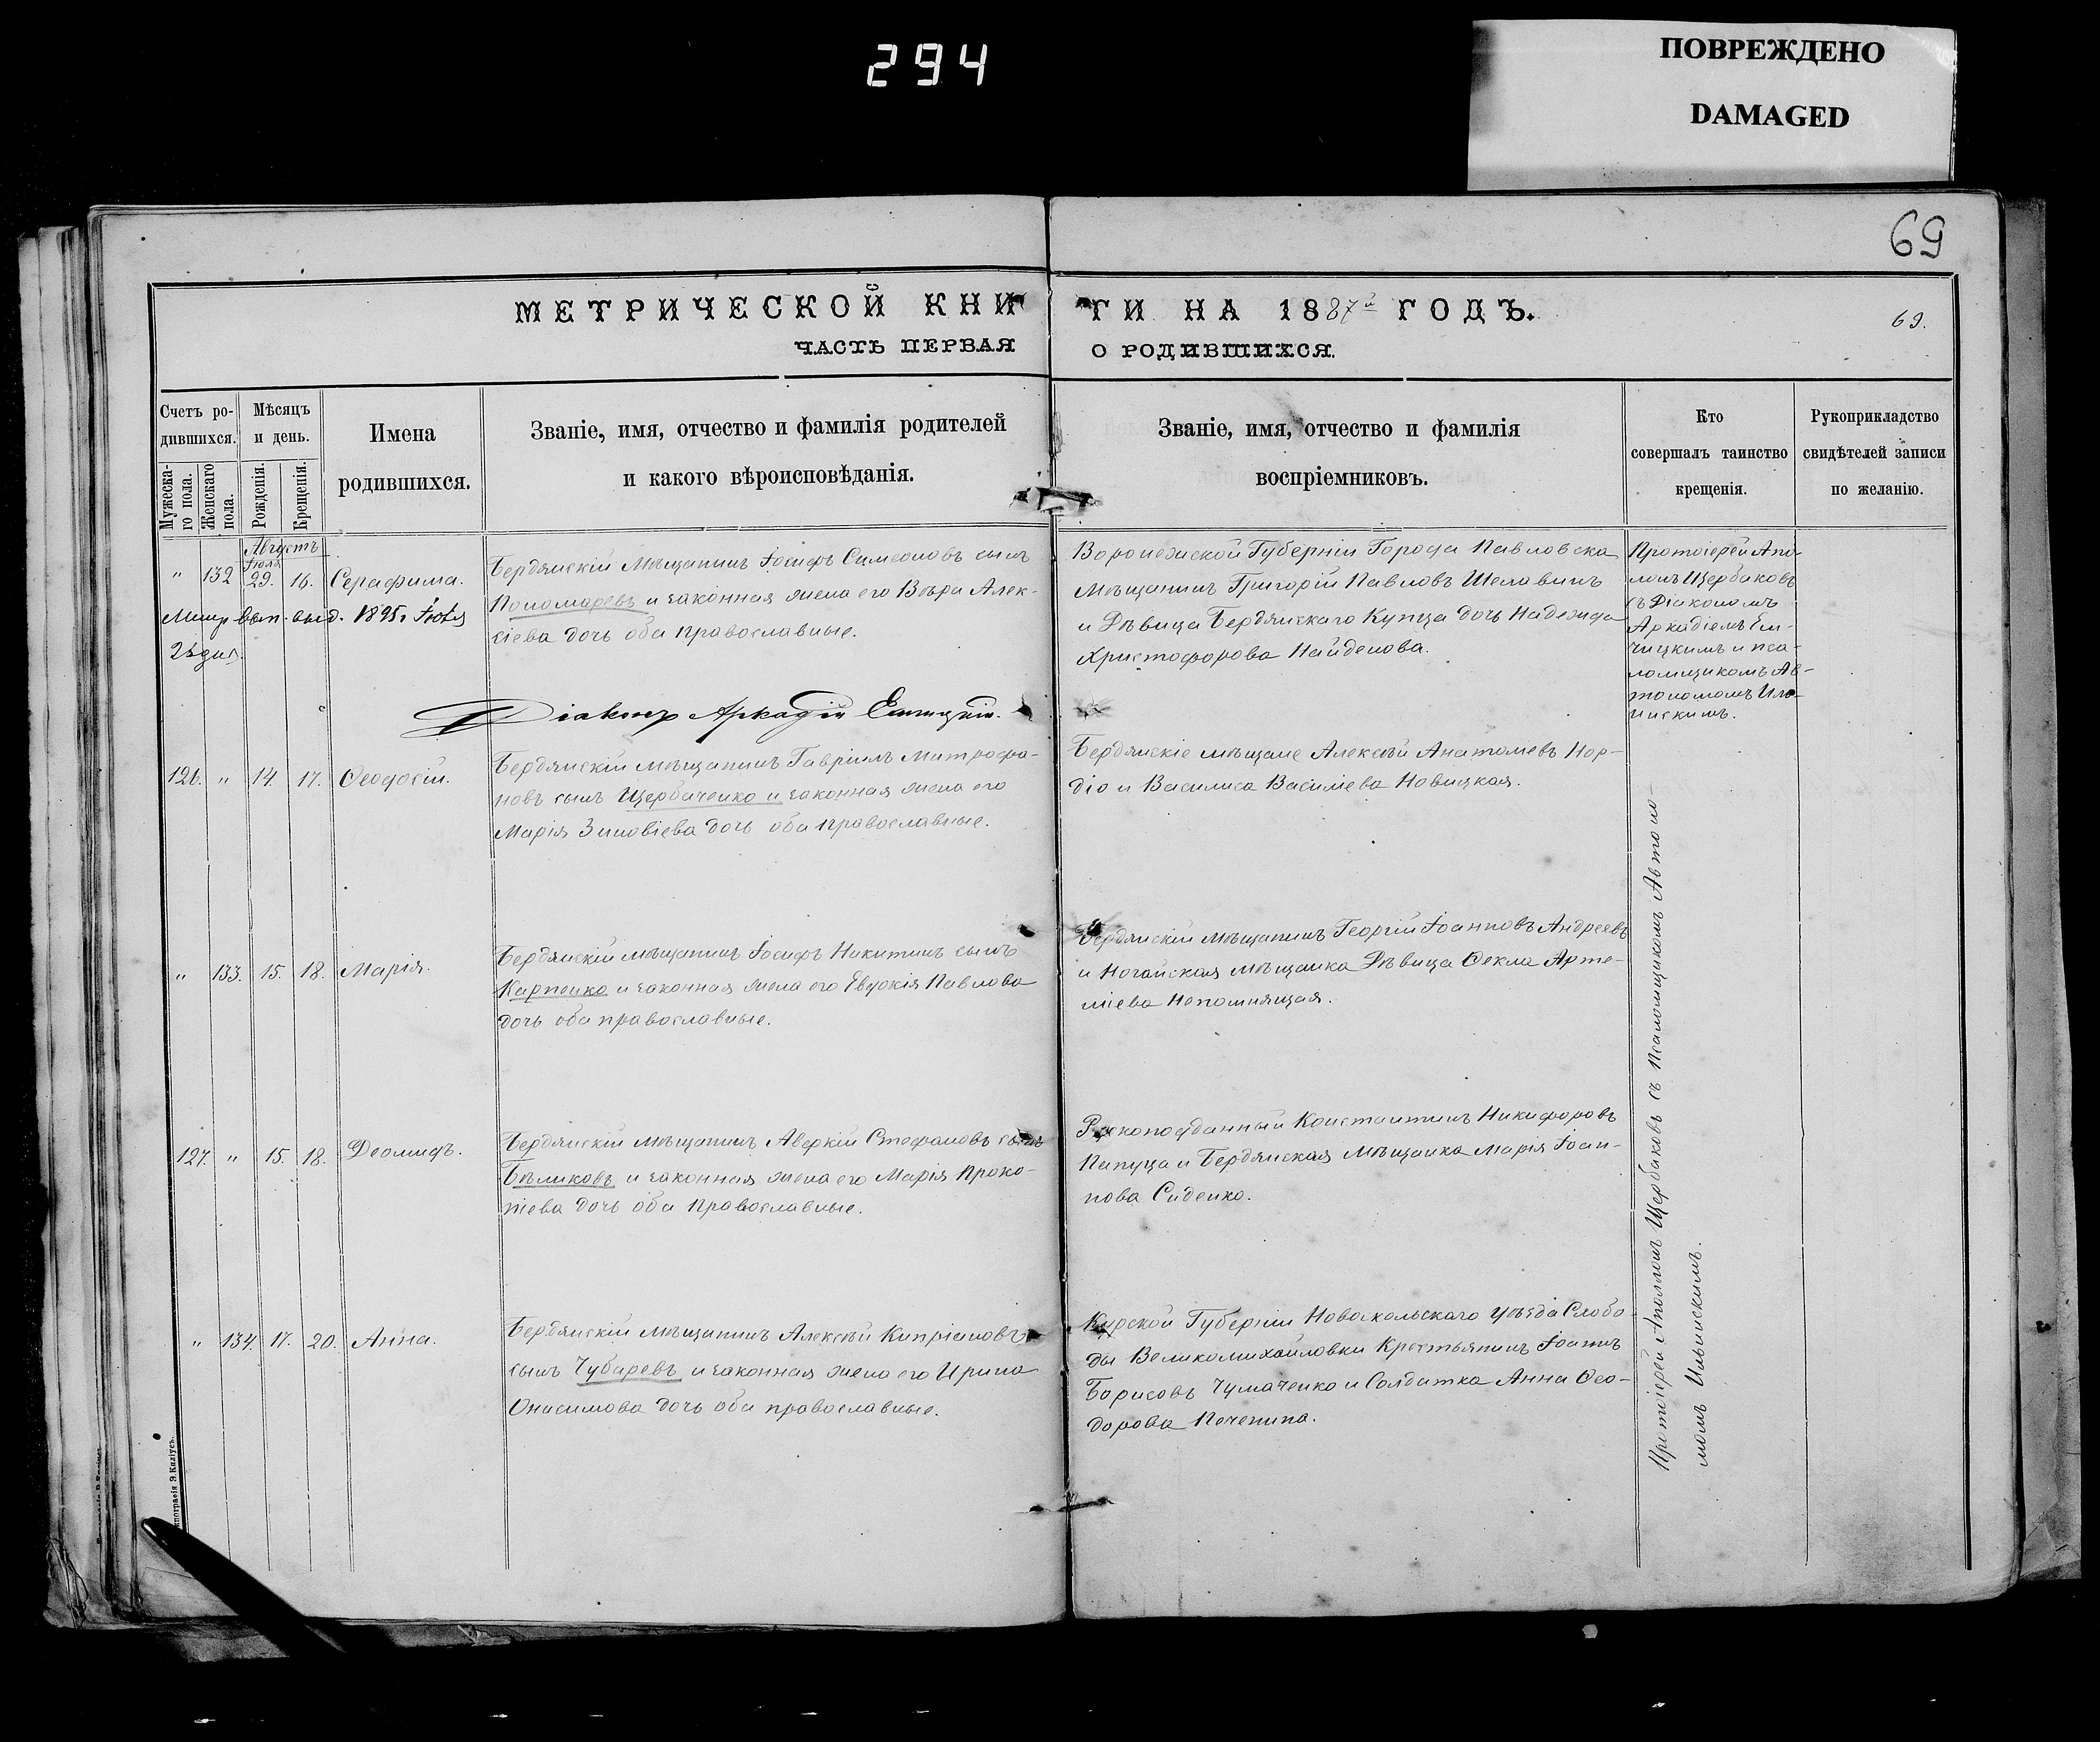 294
ПОВРЕЖДЕНО
DAMAGED
69
МЕТРИЧЕСКОЙ КНИГИ НА 1887й ГОДЪ.
69.
ЧАСТЬ ПЕРВАЯ О РОДИВШИХСЯ.
Счетъ ро-
дившихся.
Мужеска-
го пола.
Женскаго
пола.
Мѣсяцъ
и день.
Рожденія.
Крещенія.
Имена
родившихся.
Званіе, имя, отчество и фамилія родителей
и какого вѣроисповѣданія.
Званіе, имя, отчество и фамилія
воспріемниковъ.
Кто
совершалъ таинство
крещенія.
Рукоприкладство
свидѣтелей записи
по желанію.
Августъ
" 132 Іюля 29. 16. Серафима.
Метр. вып. выд. 1895г
Бердянскій Мѣщанинъ Іосифъ Симеоновъ сынъ
Пономаревъ и законная жена его Вѣра Алек-
сіева дочь оба православные.
Воронежской Губерніи Города Павловска
Мѣщанинъ Григорій Павловъ Шелавинъ
и Дѣвица Бердянскаго Купца дочь Надежда
Христофорова Найденова.
Протоіерей Апо-
лонъ Щербаковъ
съ Діакономъ
Аркадіемъ Ем-
чицкимъ и пса-
ломщикомъ Ав-
тономомъ Иль-
инскимъ.
Діаконъ Аркадій
126. " 14. 17. Ѳеодосій.
Бердянскій мѣщанинъ Гавріилъ Митрофа-
новъ сынъ Щербаченко и законная жена его
Марія Зиновіева дочь оба православные.
Бердянскіе мѣщане Алексѣй Анатоліевъ Нор-
діо и Василиса Василіева Новицкая.
" 133. 15. 18. Марія.
Бердянскій мѣщанинъ Іосифъ Никитинъ сынъ
Карпенко и законная жена его Евдокія Павлова
дочь оба православные.
Бердянскій мѣщанинъ Георгій Іоанновъ Андреевъ
и Ногайская мѣщанка Дѣвица Ѳекла Арте-
міева Непомнящая.
127. " 15. 18. Діомидъ.
Бердянскій мѣщанинъ Аверкій Стефановъ сынъ
Бѣликовъ и законная жена его Марія Проко-
піева дочь оба православные.
Грекоподданный Константинъ Никифоровъ
Папуца и Бердянская мѣщанка Марія Іоан-
нова Сиденко.
" 134. 17. 20. Анна.
Бердянскій мѣщанинъ Алексѣй Кипріановъ
сынъ Чубаревъ и законная жена его Ирина
Онисимова дочь оба православные.
Курской Губерніи Новоскольскаго уѣзда Слобо-
ды Великомихайловки Крестьянинъ Іоаннъ
Борисовъ Чумаченко и Солдатка Анна Ѳео-
дорова Печенина.
Протоіерей Аполлонъ Щербаковъ съ Псаломщикомъ Автоно-
момъ Ильинскимъ.